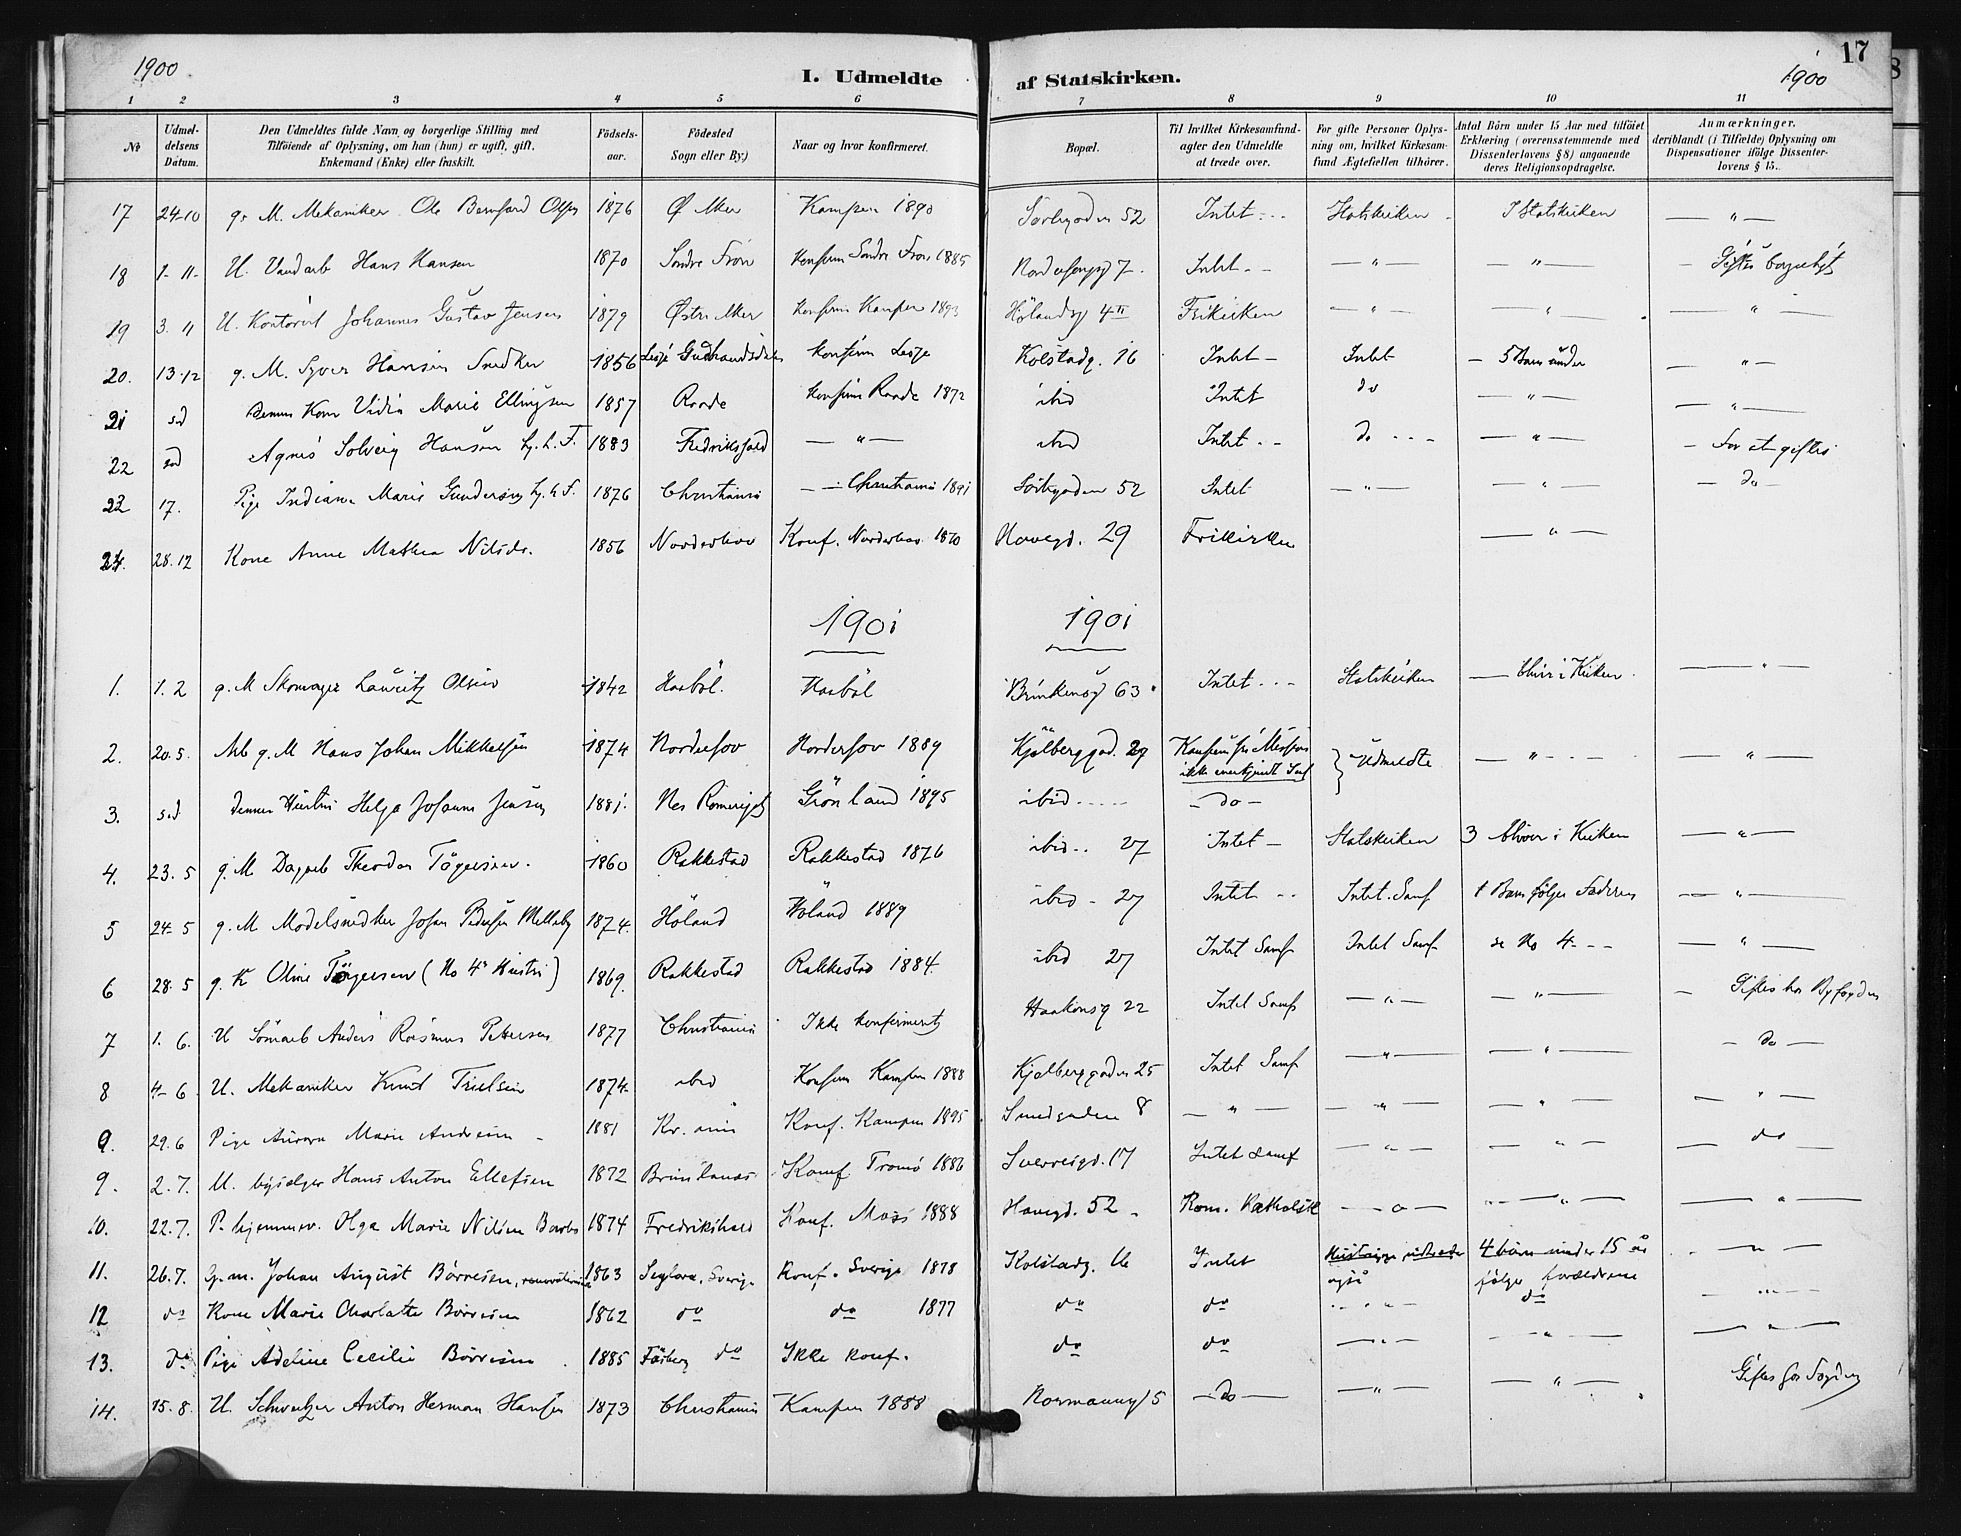 1900
17
1900
I. Udmeldte af Statskirken.
1 2 3 4 5 6 7 8 9 10 11
No
Udmel-
delsens
Datum.
Den Udmeldtes fulde Navn og borgerlige Stilling med
Tilføiende af Oplysning, om han (hun) er ugift, gift,
Enkemand (Enke) eller fraskilt.
Fødsels-
aar.
Fødested
Sogn eller By.)
Naar og hvor konfirmeret.
Bopæl.
Til hvilket Kirkesamfund-
agter den Udmeldte
at træde over.
For gifte Personer Oplys-
ning om, hvilket Kirkesam-
fund Ægtefællen tilhører.
Antal Børn under 15 Aar med tilføiet
Erklæring (overensstemmende med
Dissenterlovens § 8) angaaende
deres Religionsopdragelse.
Anmærkninger,
deriblandt (i Tilfælde) Oplysning om
Dispensationer ifølge Dissenter-
lovens § 15.
17 24-10 g. M. Mekaniker Ole Bernhard Olsen 1876 Ø Aker Kampen 1890 Sørbygaden 52 Intet Statskirken I Statskirken — " —
18 1-11- U. Hans Hansen 1870 Søndre Fron Konfirm Søndre Fron 1885 7. Intet — " — — " — Giftes borgerligt
19 3. 11 U. Kontorist Johannes Gustav Jensen 1879 Østre Aker Konfirm Kampen 1893 Hølandsg 4 II Frikirken — " — — " — — " —
20. 13-12 g. M. Syver Hansen Snedker 1856 Lesje Gudbrandsdalen konfirm Lesje Kolstadg. 16 Intet — Intet — 5 Barn under — " —
21 sd Dennes Kone Marie Ellingsen 1857 Raade Konfirm Raade 1872 ibid Intet do — " — — " —
22 sd Agnes Solveig Hansen 1883 Fredrikshald — " — ibid Intet do — " — — For at giftes
23 17. Pige Indiana Marie Gundersen 1876 Christiania Christiania 1891 Sörbygaden 52 Intet — " — — " — — do —
24. 28.12 Kone Anne Mathea Nilsds. 1856 Norderhov Konf. Norderhov 1870 Havegd. 29 Frikirken — " —
1901 1901
1. 1. 2 g. M Skomager Lauritz Olsen 1842 Haabøl. Haabøl 63 Intet Statskirken — bliver i Kirken — " —
2. 20. 5. Arb g. M Hans Johan Mikkelsen 1874 Norderhov Norderhov 1889 Kjølberggad. 27 Udmeldte — " — — " —
3. sd dennes Hustru Helga Johanne Jensen 1881. Nes Romerige Grønland 1895 ibid — do —
4. 23. 5 g. M Theodor Tögersen. 1860 Rakkestad Rakkestad 1876 ibid 27 Intet — Statskirken 3 bliver i Kirken — " —
5 24- 5 g. M Modelsnedker Johan Pedersen Melleby 1874. Höland Höland 1889 ibid - 27 Intet Intet Samf 1 Barn følger Faderen — " —
6 28. 5 g. K Oline Tögersen (No 4s Hustru) 1869. Rakkestad Rakkestad 1884 ibid 27 Intet Samf Intet Samf se No 4 — " —
7 1. 6. U Anders Rasmus Pettersen 1877 Christiania Ikke konfirmeret Haakonsg 22 Intet Samf — " — — " — — Giftes hos Byfogden
8 4- 6 U. Mekaniker Knut 1874. ibid Konfirm Kampen 1888 Kjølberggaden 25 Intet Samf — " — — " — — do —
9. 29. 6 Pige Aurora Marie Andresen 1881 Kr. ania Konf. Kampen 1895 Smedgaden 8 — " — — " — — " — — " —
9. 2. 7. U. Hans Anton Ellefsen 1872 Brunlanæs Konf Tromö 1886 Sverresgd. 17 Intet samf — " — — " — — do
10. 22.7. P. hjemmev. Olga Marie Nilsen 1874 Fredrikshald Konf. Moss 1888 Havegd. 52 Rom. Katholsk — " — — " — — " —
11. 26.7. G. m. Johan August Börresen, 1863 Seglora, Sverige Konf. Sverige 1878 Kolstadg. Intet
også
4 børn under 15 år
følger forældrene — " —
12 do Kone Marie Charlotte Börresen 1862 do do 1877 do do — " — do — " —
13. do Pige Adeline Cecilie Börresen 1885 do Ikke konf. do do — " — — " — — " —
14. 15.8. U. Anton Herman Hansen 1873 Christiania Kampen 1888 Normannsg 5 — do — — " — — " — Giftes hos Fogden